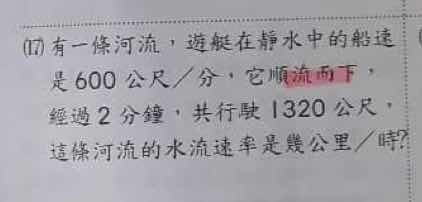 ⒄有一條河流，遊艇在靜水中的船速
是600公尺／分，它順流而下，
經過2分鐘，共行駛1320公尺，
這條河流的水流速率是幾公里／時?